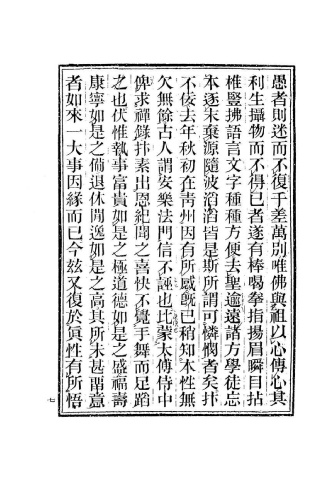 愚者則迷而不復千差萬別唯佛與祖以心傳心其
利生攝物而不得已者遂有棒喝拳指揚眉瞬目拈
椎豎拂語言文字種種方便去聖逾遠諸方學徒忘
本逐末棄源隨波滔滔皆是斯所謂可憐憫者矣抃
不佞去年秋初在靑州因有所感旣已稍知本性無
欠無餘古人謂安樂法門信不誣也比蒙太傅侍中
俾求禪錄抃素出恩紀聞之喜快不覺手舞而足蹈
之也伏惟執事富貴如是之極道德如是之盛福壽
康寧如是之備退休閒逸如是之高其所未甚畱意
者如來一大事因緣而已今茲又復於眞性有所悟
七